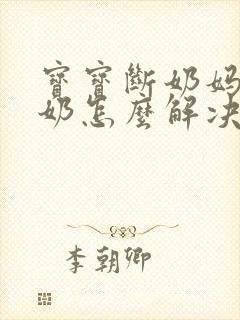 寶寶斷奶媽
奶怎麼解决
李朝卿